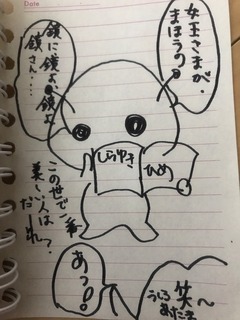 Date
女王さまが、
まほうの
鏡に鏡よ、鏡よ
鏡さん....
しらゆき
ひめ
この世で一番
美しい人は
だーれ?
あっ!!
笑〜
うしろあたま